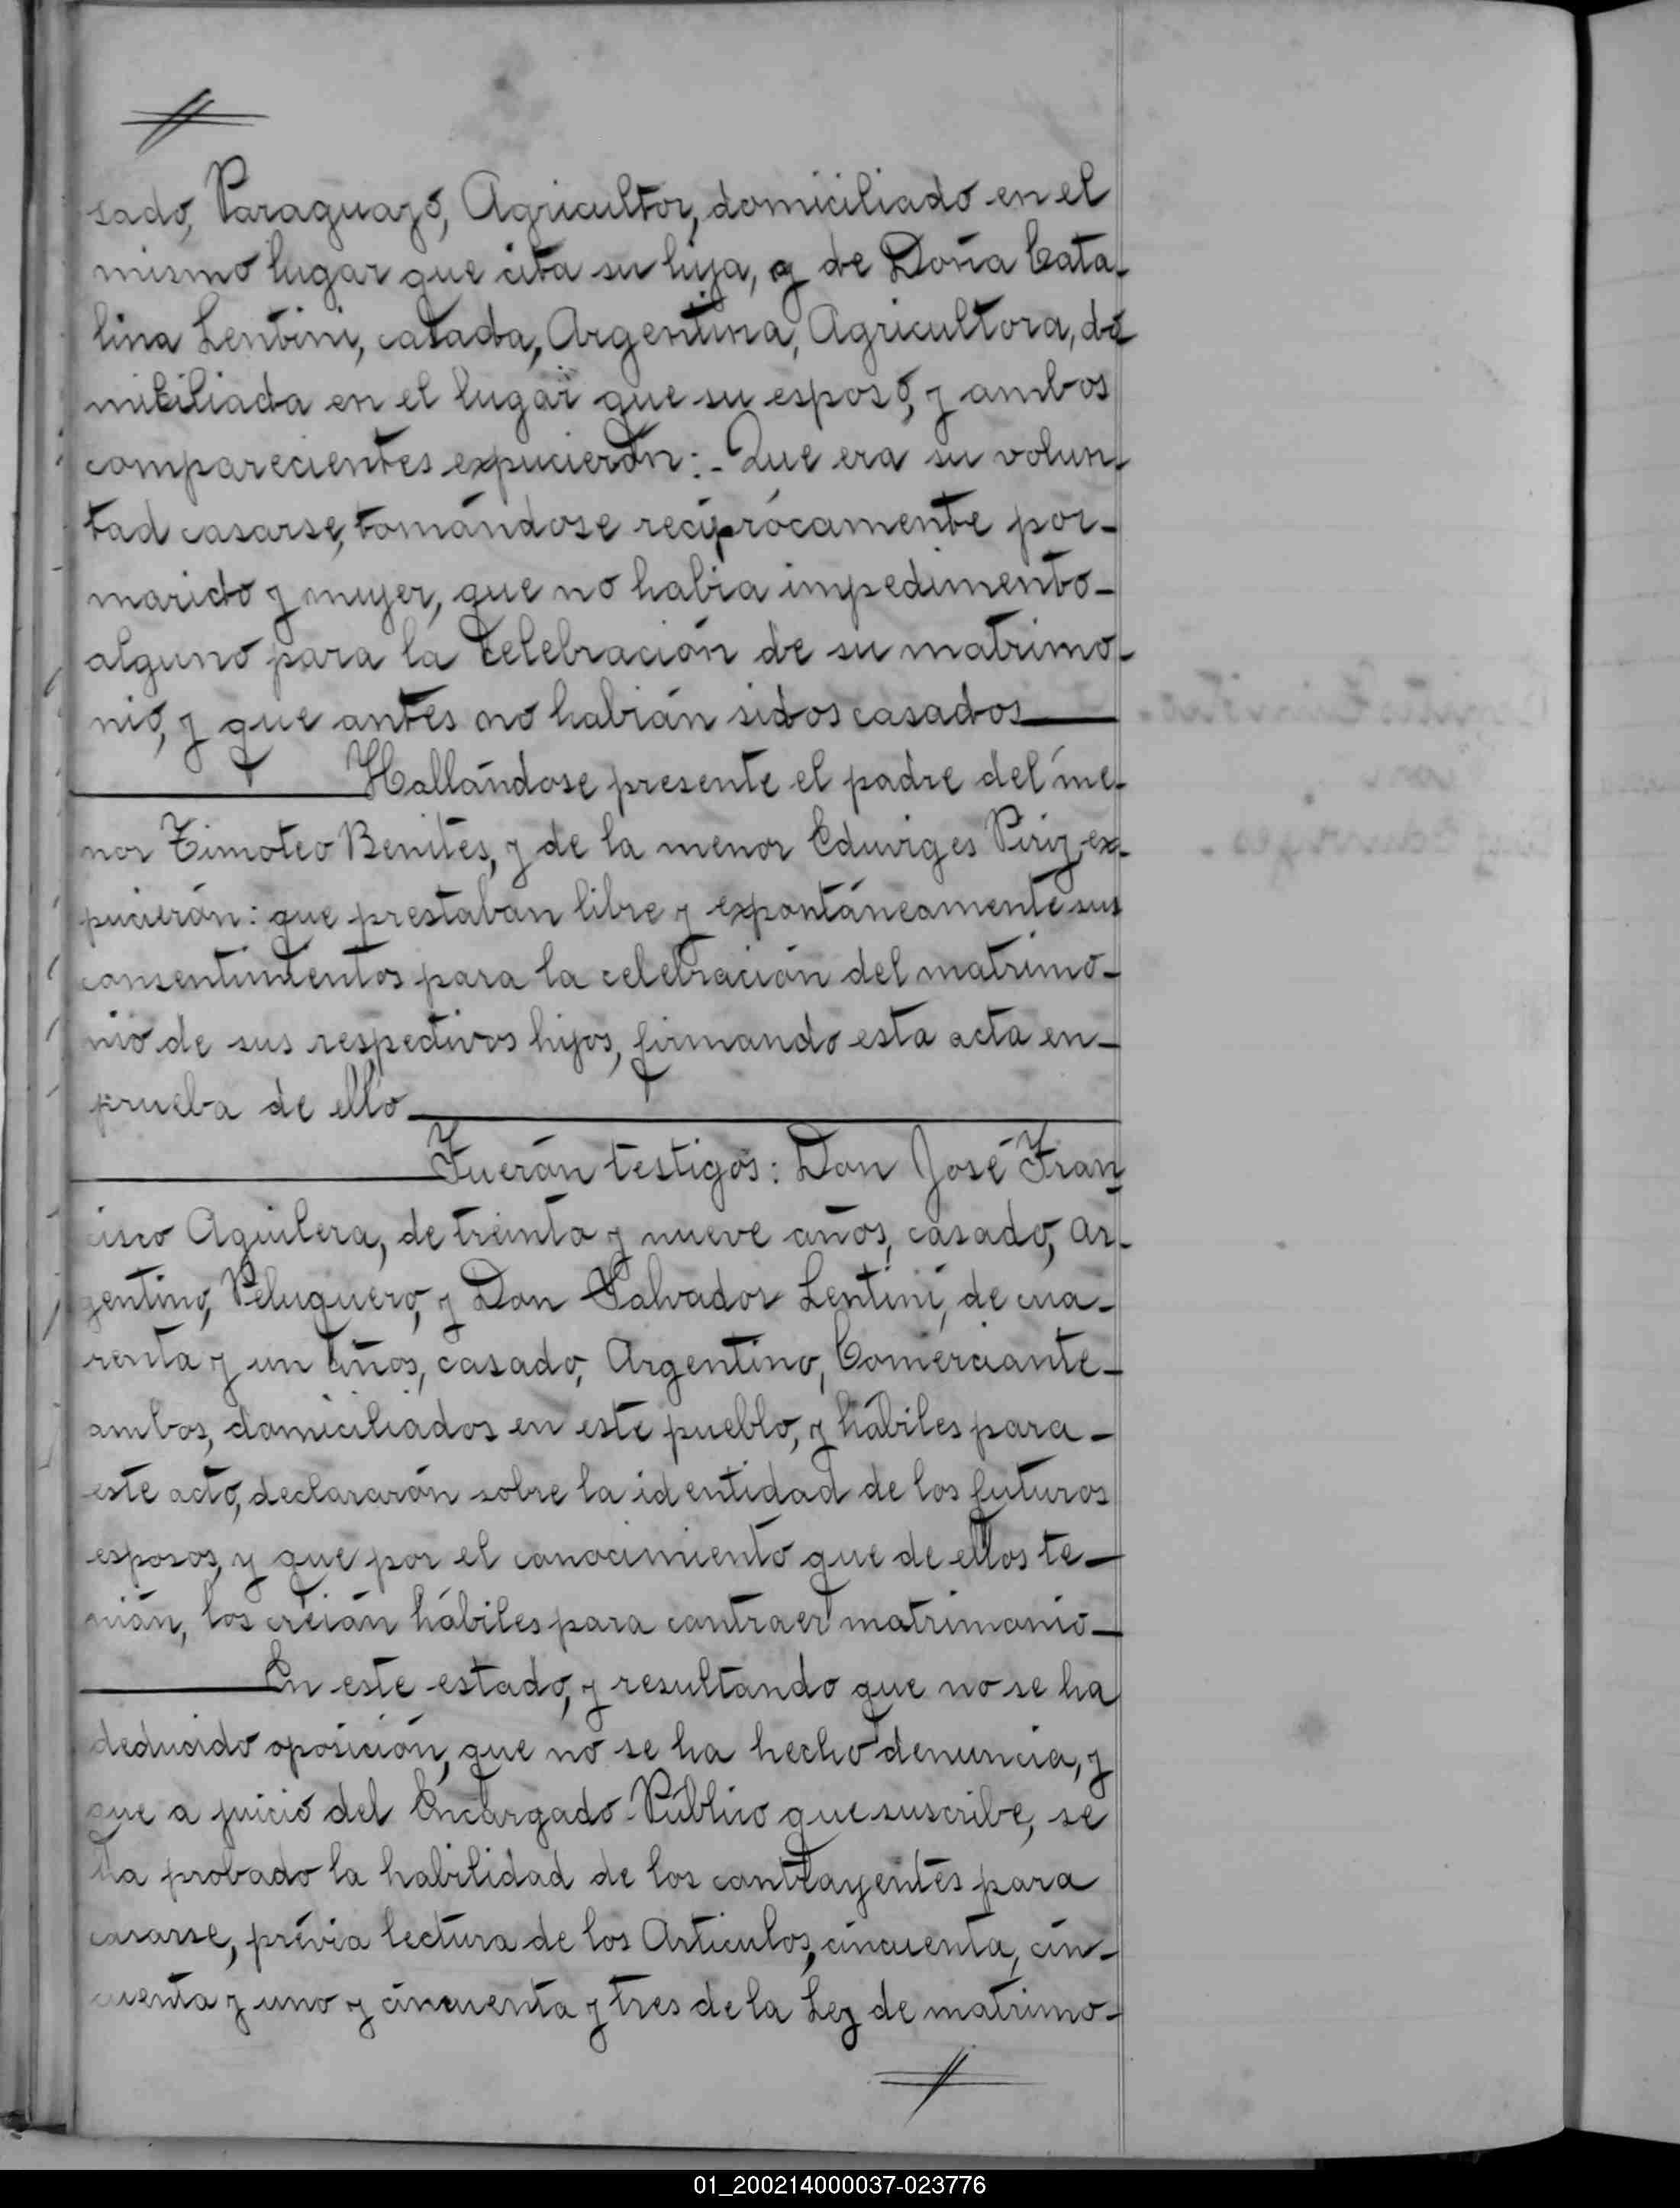 sado, Paraguayo, Agricultor, domiciliado en el
mismo lugar que cita su hija, y de Doña Cata-
lina Lentini, casada, Argentina, Agricultora, do
miciliada en el lugar que su esposo, y ambos
comparecientes expucierón:- Que era su volun-
tad casarse, tomándose recíprócamente por-
marido y mujer, que no habia impedimento-
alguno para la celebración de su matrimo-
nio, y que antes no habián sidos casados
Hallándose presente el padre del me-
nor Timoteo Benites, y de la menor Eduviges Piriz, ex-
pucierón: que prestaban libre y expontáneamente sus
consentimientos para la celebración del matrimo-
nio de sus respectivos hijos, firmando esta acta en-
prueba de ello
Fuerón testigos: Don José Fran
cisco Aguilera, de treinta y nueve años, casado, Ar-
gentino, Peluquero, y Don Salvador Lentini, de cua-
renta y un años, casado, Argentino, Comerciante-
ambos, domiciliados en este pueblo, y hábiles para-
este acto, declararón sobre la identidad de los futuros
esposos, y que por el conocimiento que de ellos te-
nián, los creián hábiles para contraer matrimonio-
En este estado, y resultando que no se ha
deducido oposición, que no se ha hecho denuncia, y
que a juicio del Encargado Público que suscribe, se
ha probado la habilidad de los contrayentes para
casarse, prévia lectura de los Articulos, cincuenta, cin-
cuenta y uno y cincuenta y tres de la Ley de matrimo-
01_200214000037-023776